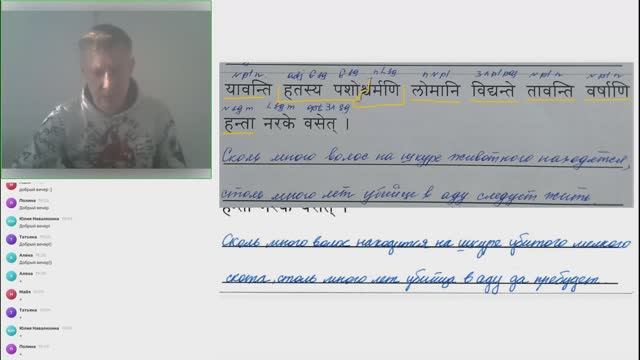 N pl n adj G sg G sg n L sg n N pl 3 л pl рад N pl n N pl n
यावन्ति हतस्य पशोश्चर्मणि लोमानि विद्यन्ते तावन्ति वर्षाणि
N sg m L sg m opt 3 л sg
हन्ता नरके वसेत् ।
Сколь много волос на шкуре животного находятся,
столь много лет убийце в аду следует жить.
हन्ता नरके वसेत् ।
Сколь много волос находится на шкуре убитого мелкого
скота, столь много лет убийца в аду да пребудет.
добрый вечер :)
Полина
Добрый вечер
Юлия Навалихина
Добрый вечер!
Татьяна
Добрый вечер!)
Алина
Добрый вечер!
Алёна
+
Майя
+
Татьяна
+
Юлия Навалихина
+
Полина
+